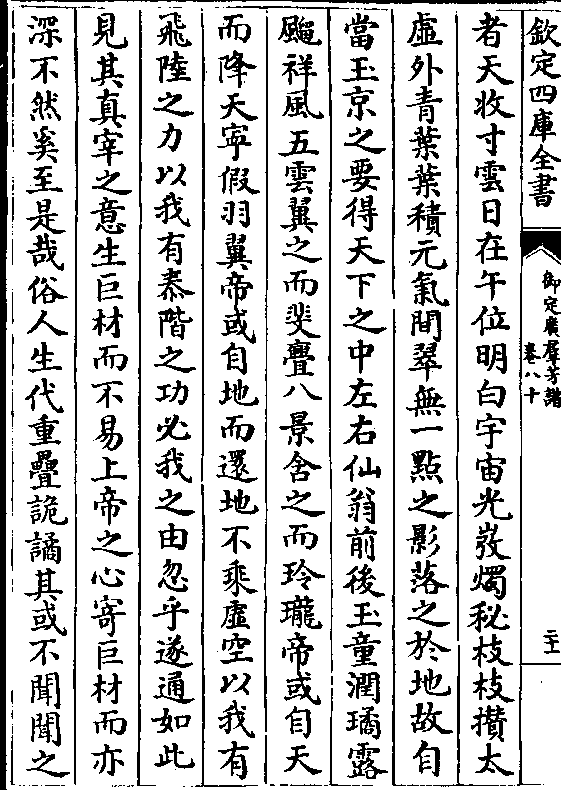 欽定四庫全書
御定廣羣芳譜
卷八十
二十
者天收寸雲日在午位明白宇宙光發燭秘枝枝攢太
虛外青葉葉積元氣間翠無一點之影落之於地故自
當玉京之要得天下之中左右仙翁前後玉童潤璚露
飈祥風五雲翼之而斐亹八景舍之而玲瓏帝或自天
而降天寧假羽翼帝或自地而還地不乘虛空以我有
飛陸之力以我有泰階之功必我之由忽乎遂通如此
見其真宰之意生巨材而不易上帝之心寄巨材而亦
深不然奚至是哉俗人生代重疊詭譎其或不聞聞之